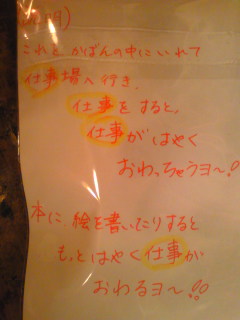 明)
これを かばんの中にいれて
仕事場へ行き、
仕事をすると、
仕事がはやく
おわっちゃうヨ〜!
本に 絵を書いたりすると
もっとはやく仕事が
おわるヨ〜!!